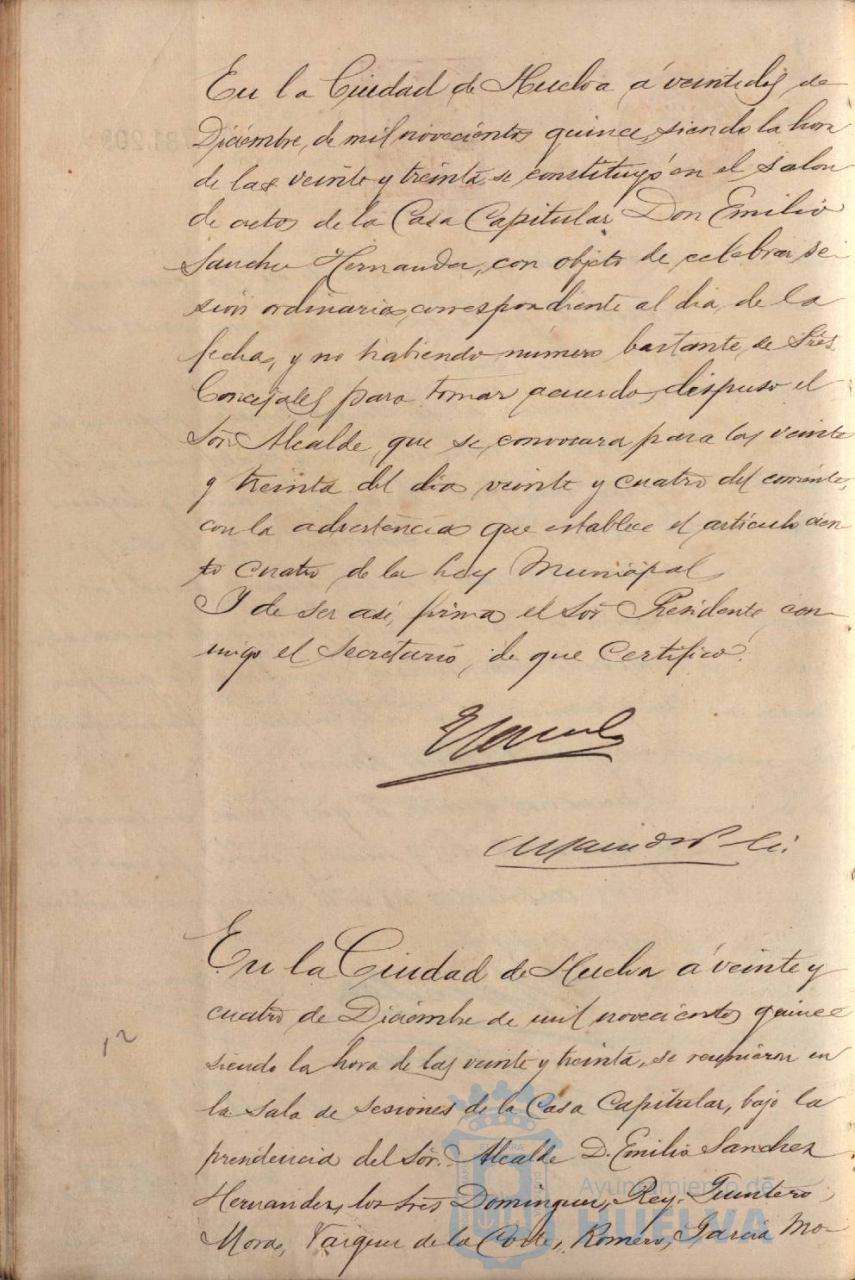 En la Ciudad de Huelva á veintedos de
Diciembre, de mil novecientos quince, siendo la hora
de las veinte y treinta, se constituyó en el salon
de actos de la Casa Capitular Don Emilio
Sanchez Hernandez, con objeto de celebrar se-
sión ordinaria, correspondiente al dia de la
fecha, y no habiendo número bastante de Sres.
Concejales para tomar acuerdo, dispuso el
Sor. Alcalde, que se convocara para las veinte
y treinta del dia veinte y cuatro del corriente,
con la advertencia que establece el artículo cien-
to cuatro de la Ley Municipal.
Y de ser así, firma el Sor. Presidente, con-
migo el Secretario, de que Certifico.
En la Ciudad de Huelva á veinte y
cuatro de Diciembre de mil novecientos quince
siendo la hora de las veinte y treinta, se reunieron en
12
la Sala de Sesiones de la Casa Capitular, bajo la
presidencia del Sor. Alcalde D. Emilio Sanchez
Hernandez, los Sres. Dominguez, Rey, Quintero,
Mora, Vazquez de la Corte, Romero, Garcia Mo-
Ayuntamiento de
HUELVA